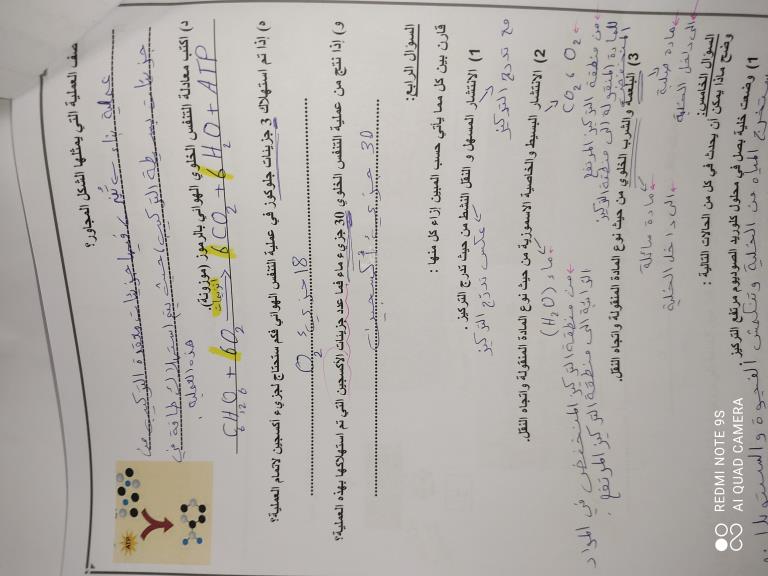 صف العملية التي يمثلها الشكل المجاور؟
عملية بناء يتم فيها جزيئات معقدة التركيب من
جزيئات بسيطة التركيب حيث يتم استهلاك طاقة في
هذه العملية
ATP
د) اكتب معادلة التنفس الخلوي الهوائي بالرموز (موزونة).
C6H12O6 + 6O2 → 6CO2 + 6H2O + ATP
ه) إذا تم استهلاك 3 جزيئات جلوكوز في عملية التنفس الهوائي فكم ستحتاج لجزيء اكسجين لاتمام العملية؟
18 جزيء O2
و) إذا نتج من عملية التنفس الخلوي 30 جزيء ماء فما عدد جزيئات الأكسجين التي تم استهلاكها بهذه العملية؟
30 جزيء أكسجين
السؤال الرابع:
قارن بين كل مما يأتي حسب المبين إزاء كل منها :
1) الانتشار المسهل و النقل النشط من حيث تدرج التركيز .
مع تدرج التركيز
عكس تدرج التركيز
2) الانتشار البسيط والخاصية الاسموزية من حيث نوع المادة المنقولة واتجاه النقل.
CO2 ، O2
ماء (H2O)
من منطقة التركيز المرتفع
للمادة المنقولة إلى منطقة التركيز
المنخفض
من منطقة التركيز المنخفض في المواد
الذائبة الى منطقة التركيز المرتفع .
3) البلعمة والشرب الخلوي من حيث نوع المادة المنقولة واتجاه النقل.
مادة صلبة
الى داخل الخلية
مادة سائلة
الى داخل الخلية
السؤال الخامس:
وضح ماذا يمكن أن يحدث في كل من الحالات التالية :
1) وضعت خلية بصل في محلول كلوريد الصوديوم مرتفع التركيز .
المياه من الخلية وتنكمش الفجوة
REDMI NOTE 9S
AI QUAD CAMERA